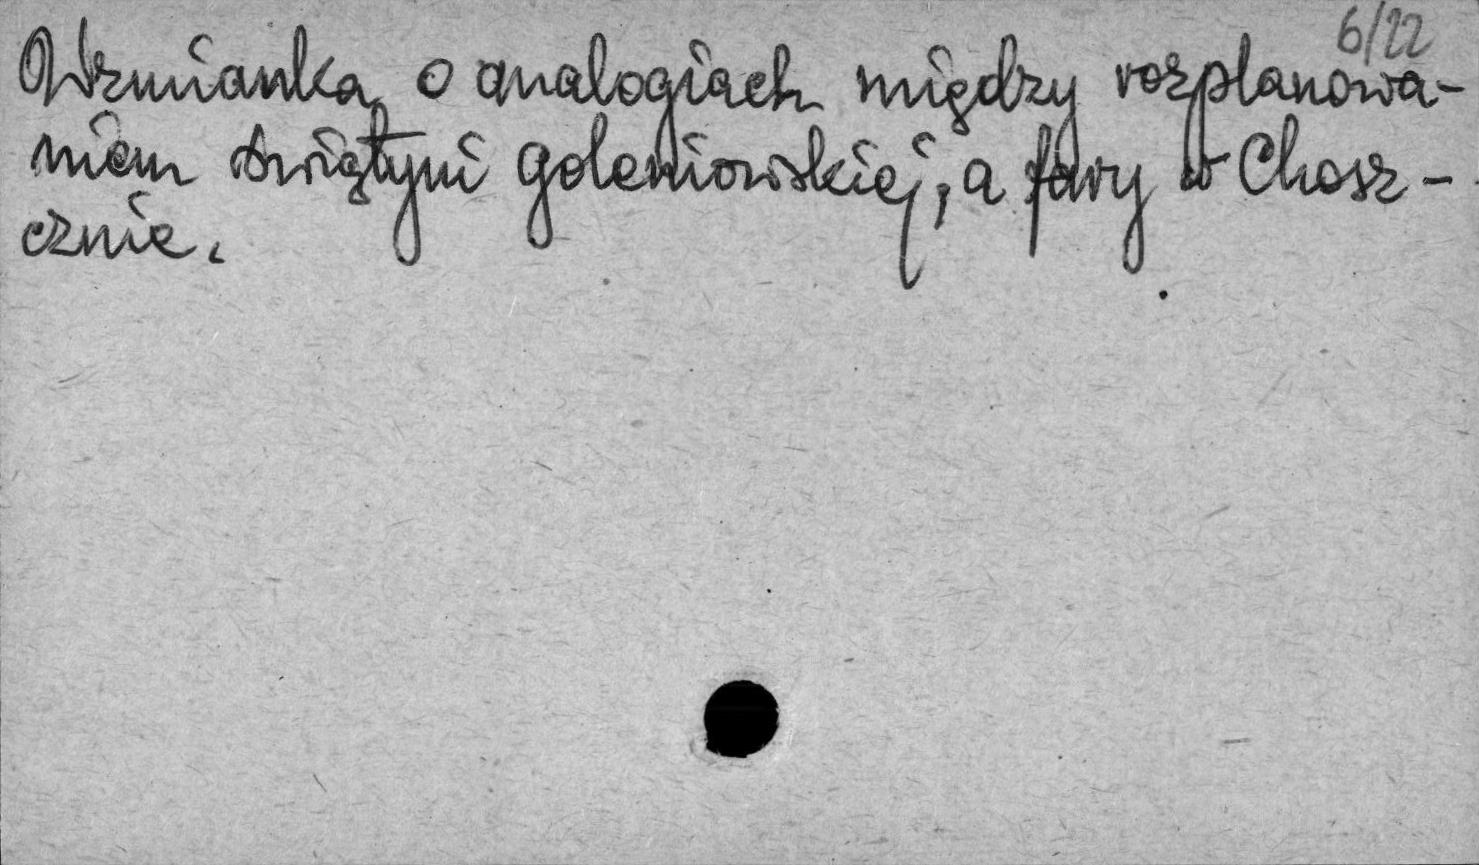 6/22
Wzmianka o analogiach między rozplanowa-
niem świątyni goleniowskiej, a fary w Chosz-
cznie.